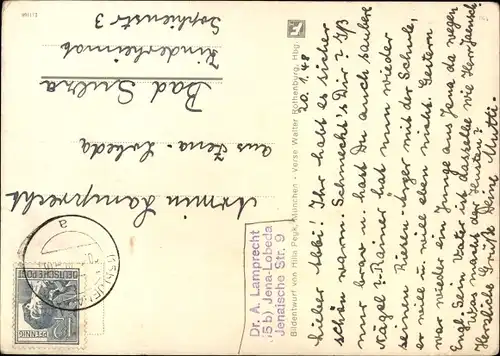 20.1.48
Lieber Abbi! Ihr habt es sicher
schön warm. Schmeckt's Dir? Iß
nur brav u. hast Du auch saubere
Nägel? Rainer hat nun wieder
seinen Riesen-Ärger mit der Schule,
er will u. will eben nicht. Gestern
war wieder ein Junge aus Jena da wegen
Engl. Sein Vater ist dasselbe wie Herr Jaensch.
Was macht der Husten?
Herzliche Grüße Deine Mutti.
Dr. A. Lamprecht
(15b) Jena-Lobeda
Jenaische Str. 9
Bildentwurf von Hilla Peyk, München - Verse Walter Rothenburg, Hbg.
Armin Lamprecht
aus Jena-Lobeda
Bad Sulza
Kinderheimat
Sophienstr 3
DEUTSCHE POST
12
PFENNIG
a